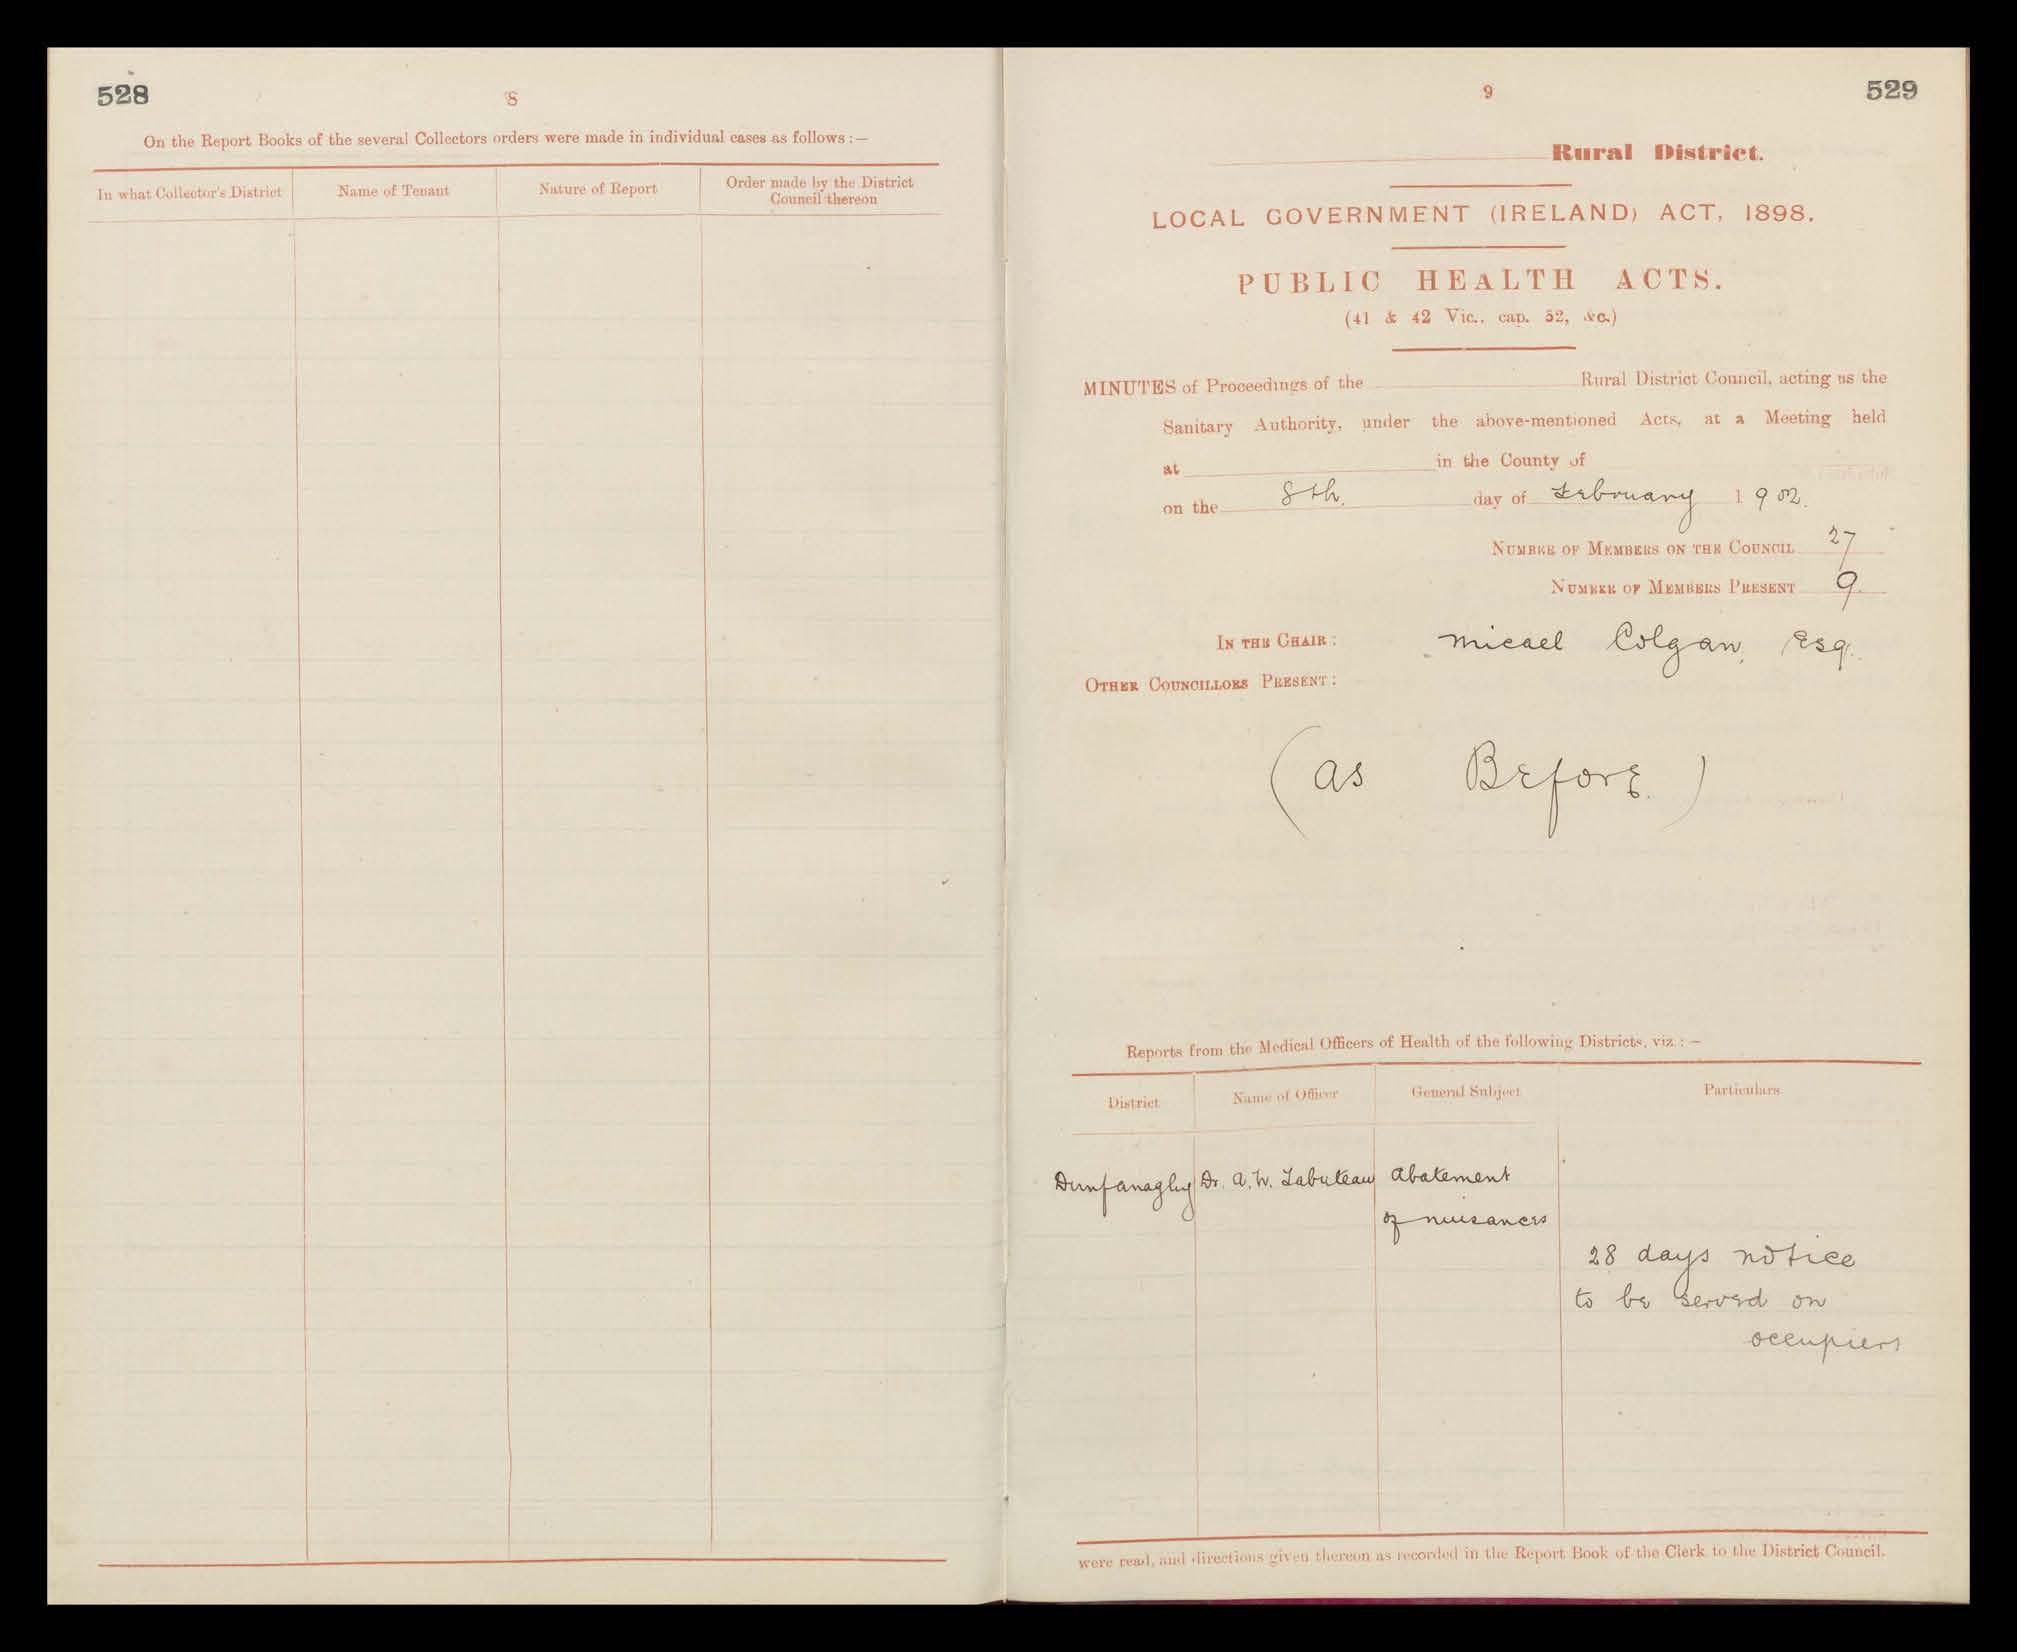 528
8
On the Report Books of the several Collectors orders were made in individual cases as follows :—
In what Collector's District
Name of Tenant
Nature of Report
Order made by the District
Council thereon
9
529
Rural District.
LOCAL GOVERNMENT (IRELAND) ACT, 1898.
PUBLIC HEALTH ACTS.
(41 & 42 Vic., cap. 52, &c.)
MINUTES of Proceedings of the Rural District Council, acting as the
Sanitary Authority, under the above-mentioned Acts, at a Meeting held
at in the County of
on the 8th. day of February 1902.
NUMBER OF MEMBERS ON THE COUNCIL 27
NUMBER OF MEMBERS PRESENT 9
IN THE CHAIR : Micael Colgan, Esq.
OTHER COUNCILLORS PRESENT :
(as Before.)
Reports from the Medical Officers of Health of the following Districts, viz. :—
District
Name of Officer
General Subject
Particulars
Dunfanaghy Dr. A. W. Labuteau Abatement
of nuisances
28 days notice
to be served on
occupiers
were read, and directions given thereon as recorded in the Report Book of the Clerk to the District Council.